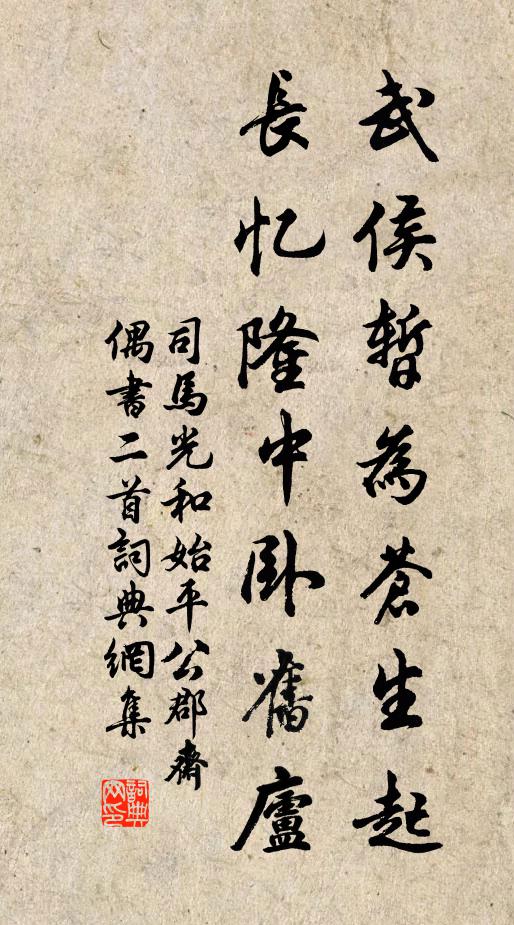 武侯暫為蒼生起
長忆隆中卧舊廬
司馬光和始平公郡齋
偶書二首詞典網集
詞典
网印